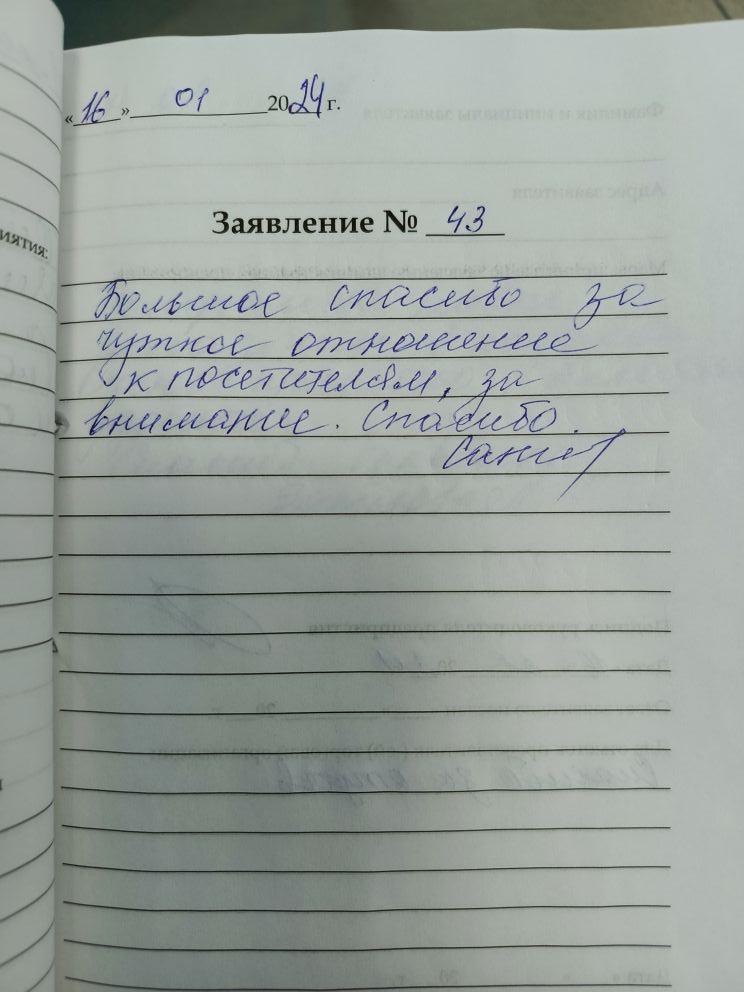 «16» 01 2024 г.
Заявление № 43
иятия:
Большое спасибо за
чуткое отношение
к посетителям, за
внимание. Спасибо.